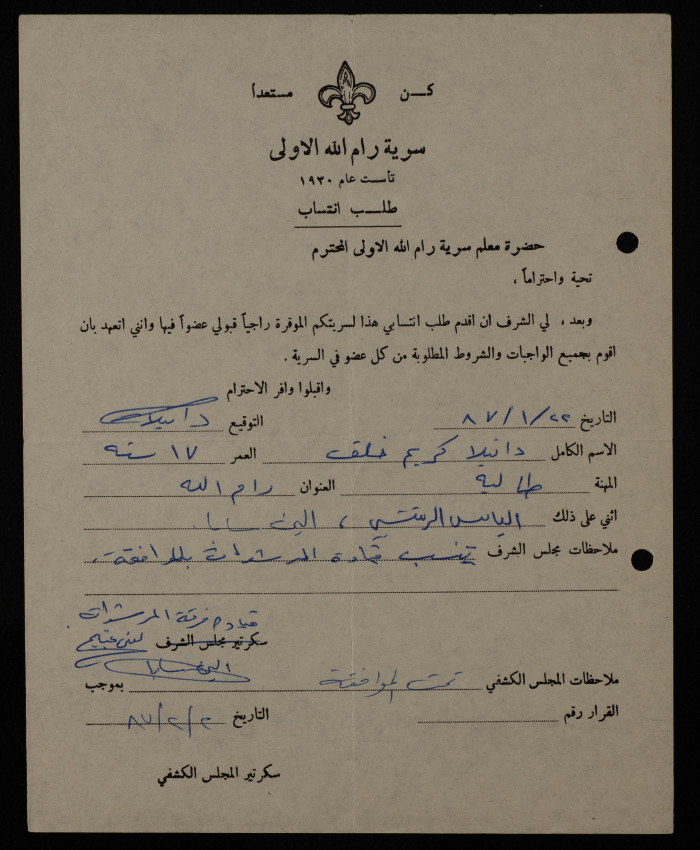 كـــن مستعداً
سرية رام الله الاولى
تأسست عام ١٩٣٠
طلـــب انتساب
حضرة معلم سرية رام الله الاولى المحترم
تحية واحتراماً ،
وبعد ، لي الشرف ان اقدم طلب انتسابي هذا لسريتكم الموقرة راجياً قبولي عضواً فيها وانني اتعهد بان
اقوم بجميع الواجبات والشروط المطلوبة من كل عضو في السرية .
واقبلوا وافر الاحترام
التاريخ ٨٧/١/٢٢ التوقيع دانيلا
الاسم الكامل دانيلا كريم خلف العمر ١٧ سنه
المهنة طالبة العنوان رام الله
اثني على ذلك الياس الرنتيسي ، الين سابا
ملاحظات مجلس الشرف تنسب قيادة المرشدات بالموافقة.
قيادة فرقة المرشدات
سكرتير مجلس الشرف
الين سابا
ملاحظات المجلس الكشفي تمت الموافقة بموجب
القرار رقم التاريخ ٨٧/٢/٢٠
سكرتير المجلس الكشفي